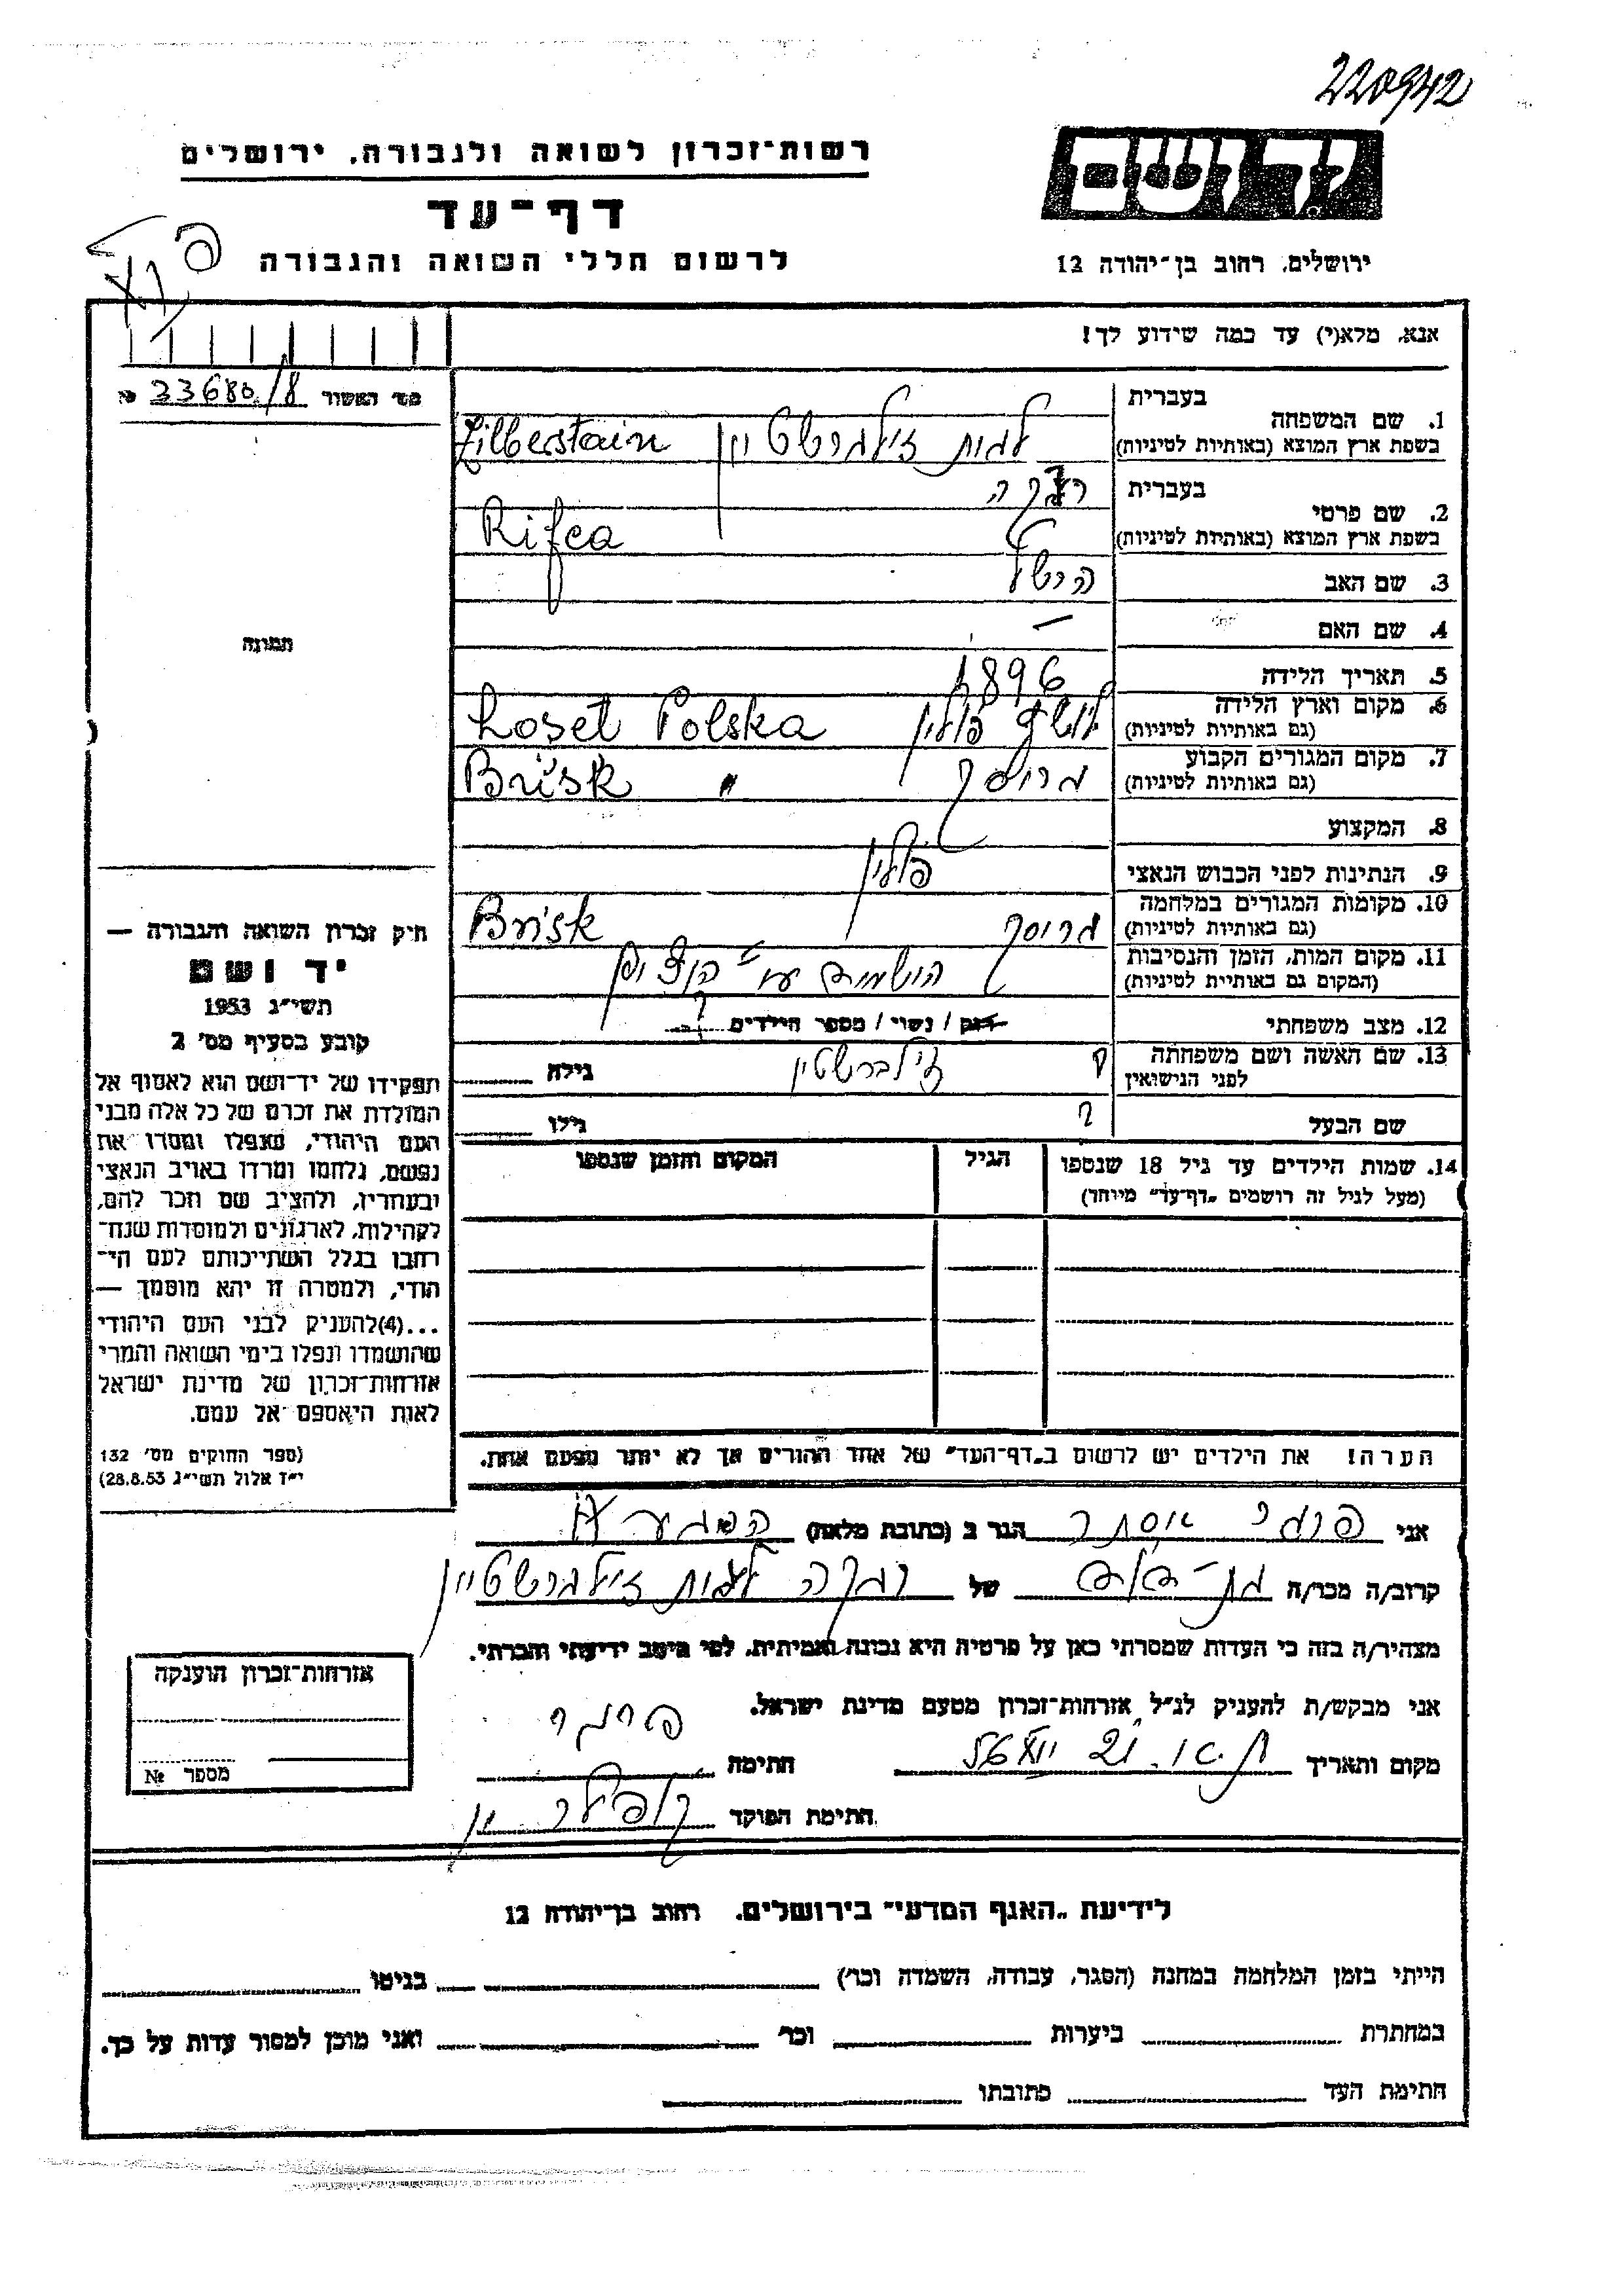 220942
רשות־זכרון לשואה ולגבורה, ירושלים
יד ושם
דף־עד
לרשום חללי השואה והגבורה
ירושלים, רחוב בן־יהודה 12
אנא, מלא(י) עד כמה שידוע לך!
מס' האשור 33680/8
1. שם המשפחה
בעברית
בשפת ארץ המוצא (באותיות לטיניות)
זילברשטיין
Zilberstain
2. שם פרטי
בעברית
רבקה
בשפת ארץ המוצא (באותיות לטיניות)
Rifca
3. שם האב
הרשל
4. שם האם
–
5. תאריך הלידה
1896
6. מקום וארץ הלידה
(גם באותיות לטיניות)
פולין Loset Polska
7. מקום המגורים הקבוע
(גם באותיות לטיניות)
בריסק Brisk "
8. המקצוע
9. הנתינות לפני הכבוש הנאצי
פולין
10. מקומות המגורים במלחמה
(גם באותיות לטיניות)
בריסק Brisk
11. מקום המות, הזמן והנסיבות
(המקום גם באותיות לטיניות)
12. מצב משפחתי
רוק / נשוי / מספר הילדים
13. שם האשה ושם משפחתה
לפני הנישואין
זילברשטיין
גילה
שם הבעל
?
גילו
14. שמות הילדים עד גיל 18 שנספו
(מעל לגיל זה רושמים "דף־עד" מיוחד)
הגיל
המקום והזמן שנספו
הערה! את הילדים יש לרשום ב"דף־העד" של אחד ההורים אך לא יותר מפעם אחת.
תמונה
חיק זכרון השואה והגבורה —
יד ושם
תשי"ג 1953
קובע בסעיף מס' 2
תפקידו של יד־ושם הוא לאסוף אל
המולדת את זכרם של כל אלה מבני
העם היהודי, שנפלו ומסרו את
נפשם, נלחמו ומרדו באויב הנאצי
ובעוזריו, ולהציב שם וזכר להם,
לקהילות, לארגונים ולמוסדות שנח־
רחבו בגלל השתייכותם לעם הי־
הודי, ולמטרה זו יהא מוסמך —
...(4)להעניק לבני העם היהודי
שהושמדו ונפלו בימי השואה והמרי
אזרחות־זכרון של מדינת ישראל
לאות היאספם אל עמם.
(ספר החוקים מס' 132
י"ז אלול תשי"ג 28.8.53)
אני אסתר הגר ב (כתובת מלאה)
קרוב/ה מכר/ה בת־דודה של רבקה זילברשטיין
מצהיר/ה בזה כי העדות שמסרתי כאן על פרטיה היא נכונה ואמיתית, לפי מיטב ידיעתי והכרתי.
אני מבקש/ת להעניק לנ"ל אזרחות־זכרון מטעם מדינת ישראל.
מקום ותאריך
חתימה
חתימת הפוקד
אזרחות־זכרון הוענקה
מספר №
לידיעת "האגף המדעי" בירושלים, רחוב בן־יהודה 12
הייתי בזמן המלחמה במחנה (הסגר, עבודה, השמדה וכו') בגיטו
במחתרת ביערות וכו' ואני מוכן למסור עדות על כך.
חתימת העד כתובתו